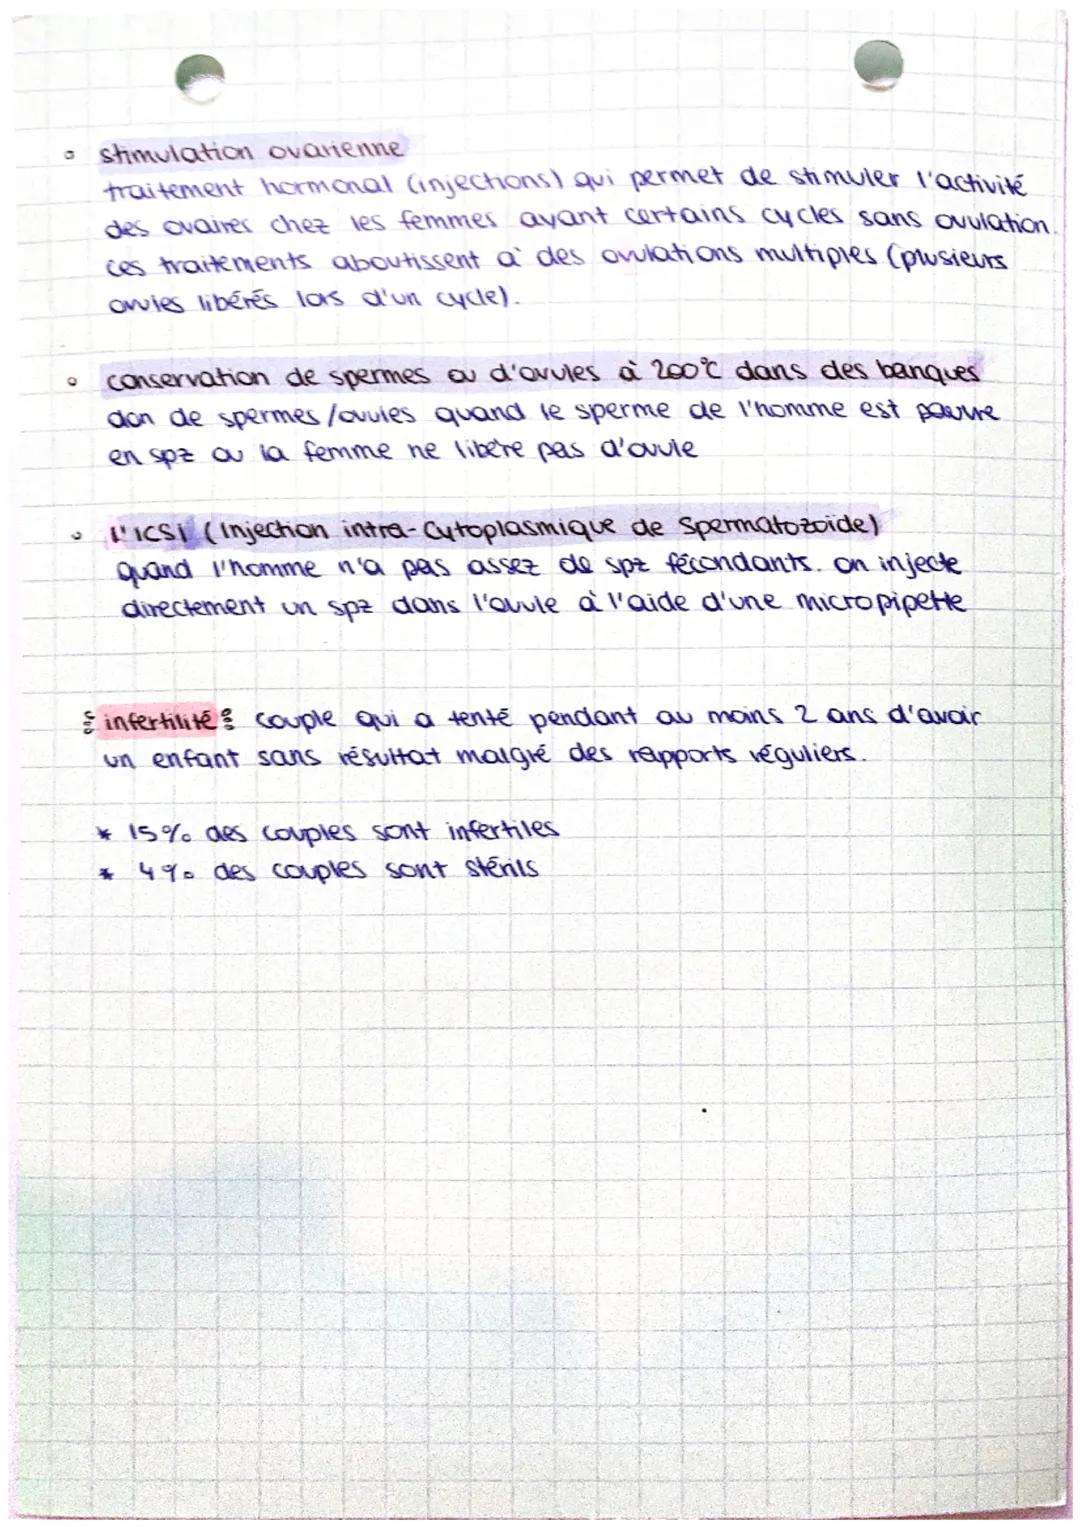 stimulation ovarienne
traitement hormonal (injections) qui permet de stimuler l'activité
des ovaires chez les femmes ayant certains cycles sans ovulation.
ces traitements aboutissent à des ovulations multiples (plusieurs
ovules libérés lors d'un cycle).
conservation de spermes ou d'ovules à 200°C dans des banques
don de spermes/ovules quand le sperme de l'homme est pauvre
en spz ou la femme ne libère pas d'ovule
l'ICSI (Injection intra-Cytoplasmique de Spermatozoïde)
quand l'homme n'a pas assez de spz fécondants. on injecte
directement un spz dans l'ovule à l'aide d'une micropipette
infertilité : couple qui a tenté pendant au moins 2 ans d'avoir
un enfant sans résultat malgré des rapports réguliers.
* 15% des couples sont infertiles
* 4% des couples sont stérils